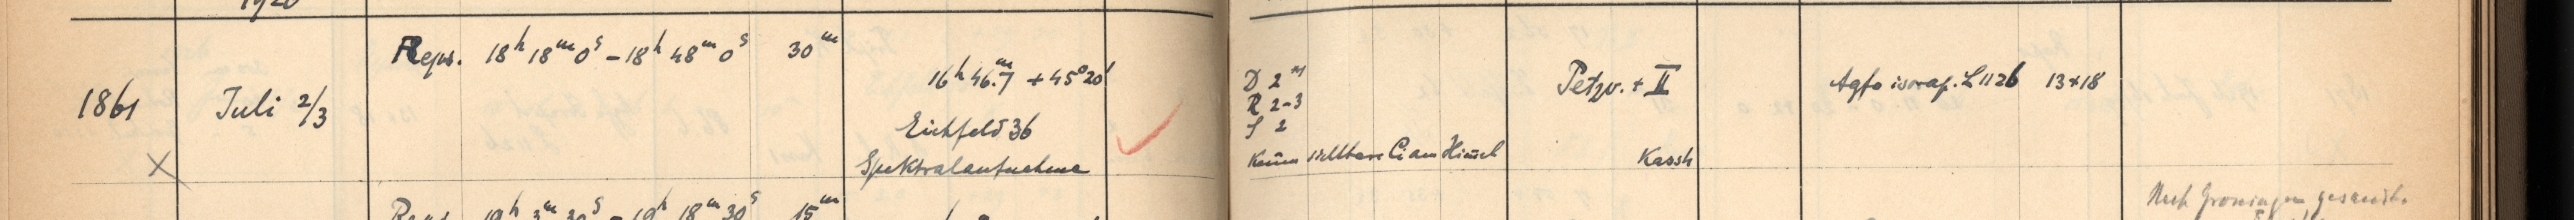 1920
Reps. 18h 18m 0s - 18h 48m 0s 30m
1861 Juli 2/3
16h 46.m7 + 45°20'
Eichfeld 36
Spektralaufnahme
X
D 2
R 2-3
S 2
Kaum sichtbare Ci am Himmel
Petzv. + II
Kassk
Agfa isorap. L 1126 13x18
Reps. 19h 3m 30s - 19h 18m 30s 15m
Nach Groningen gesandt.